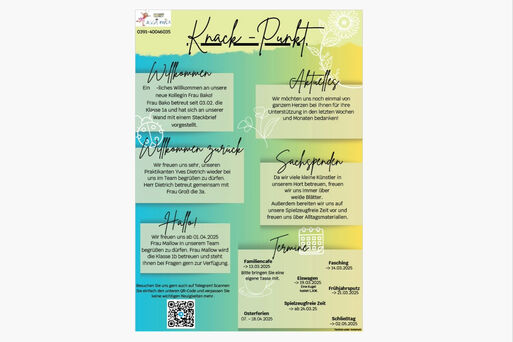 0391-40046035
Knack-Punkt
Willkommen
Ein -liches Willkommen an unsere
neue Kollegin Frau Bako!
Frau Bako betreut seit 03.02. die
Klasse 1a und hat sich an unserer
Wand mit einem Steckbrief
vorgestellt.
Aktuelles
Wir möchten uns noch einmal von
ganzem Herzen bei Ihnen für Ihre
Unterstützung in den letzten Wochen
und Monaten bedanken!
Willkommen zurück
Wir freuen uns sehr, unseren
Praktikanten Yves Dietrich wieder bei
uns im Team begrüßen zu dürfen.
Herr Dietrich betreut gemeinsam mit
Frau Groß die 3a.
Sachspenden
Da wir viele kleine Künstler in
unserem Hort betreuen, freuen
wir uns immer über
weiße Blätter.
Außerdem bereiten wir uns auf
unsere Spielzeugfreie Zeit vor und
freuen uns über Alltagsmaterialien.
Hallo!
Wir freuen uns ab 01.04.2025
Frau Mallow in unserem Team
begrüßen zu dürfen. Frau Mallow wird
die Klasse 1b betreuen und steht
Ihnen bei Fragen gern zur Verfügung.
Besuchen Sie uns gern auch auf Telegram! Scannen
Sie einfach den unteren QR-Code und verpassen Sie
keine wichtigen Neuigkeiten mehr
Termine
Familiencafe
-> 13.03.2025
Bitte bringen Sie eine
eigene Tasse mit.
Fasching
-> 14.03.2025
Eiswagen
-> 19.03.2025
Eine Kugel
kostet 1,50€.
Frühjahrsputz
-> 21.03.2025
Spielzeugfreie Zeit
-> ab 24.03.25
Osterferien
07. - 18.04.2025
Schließtag
-> 02.05.2025